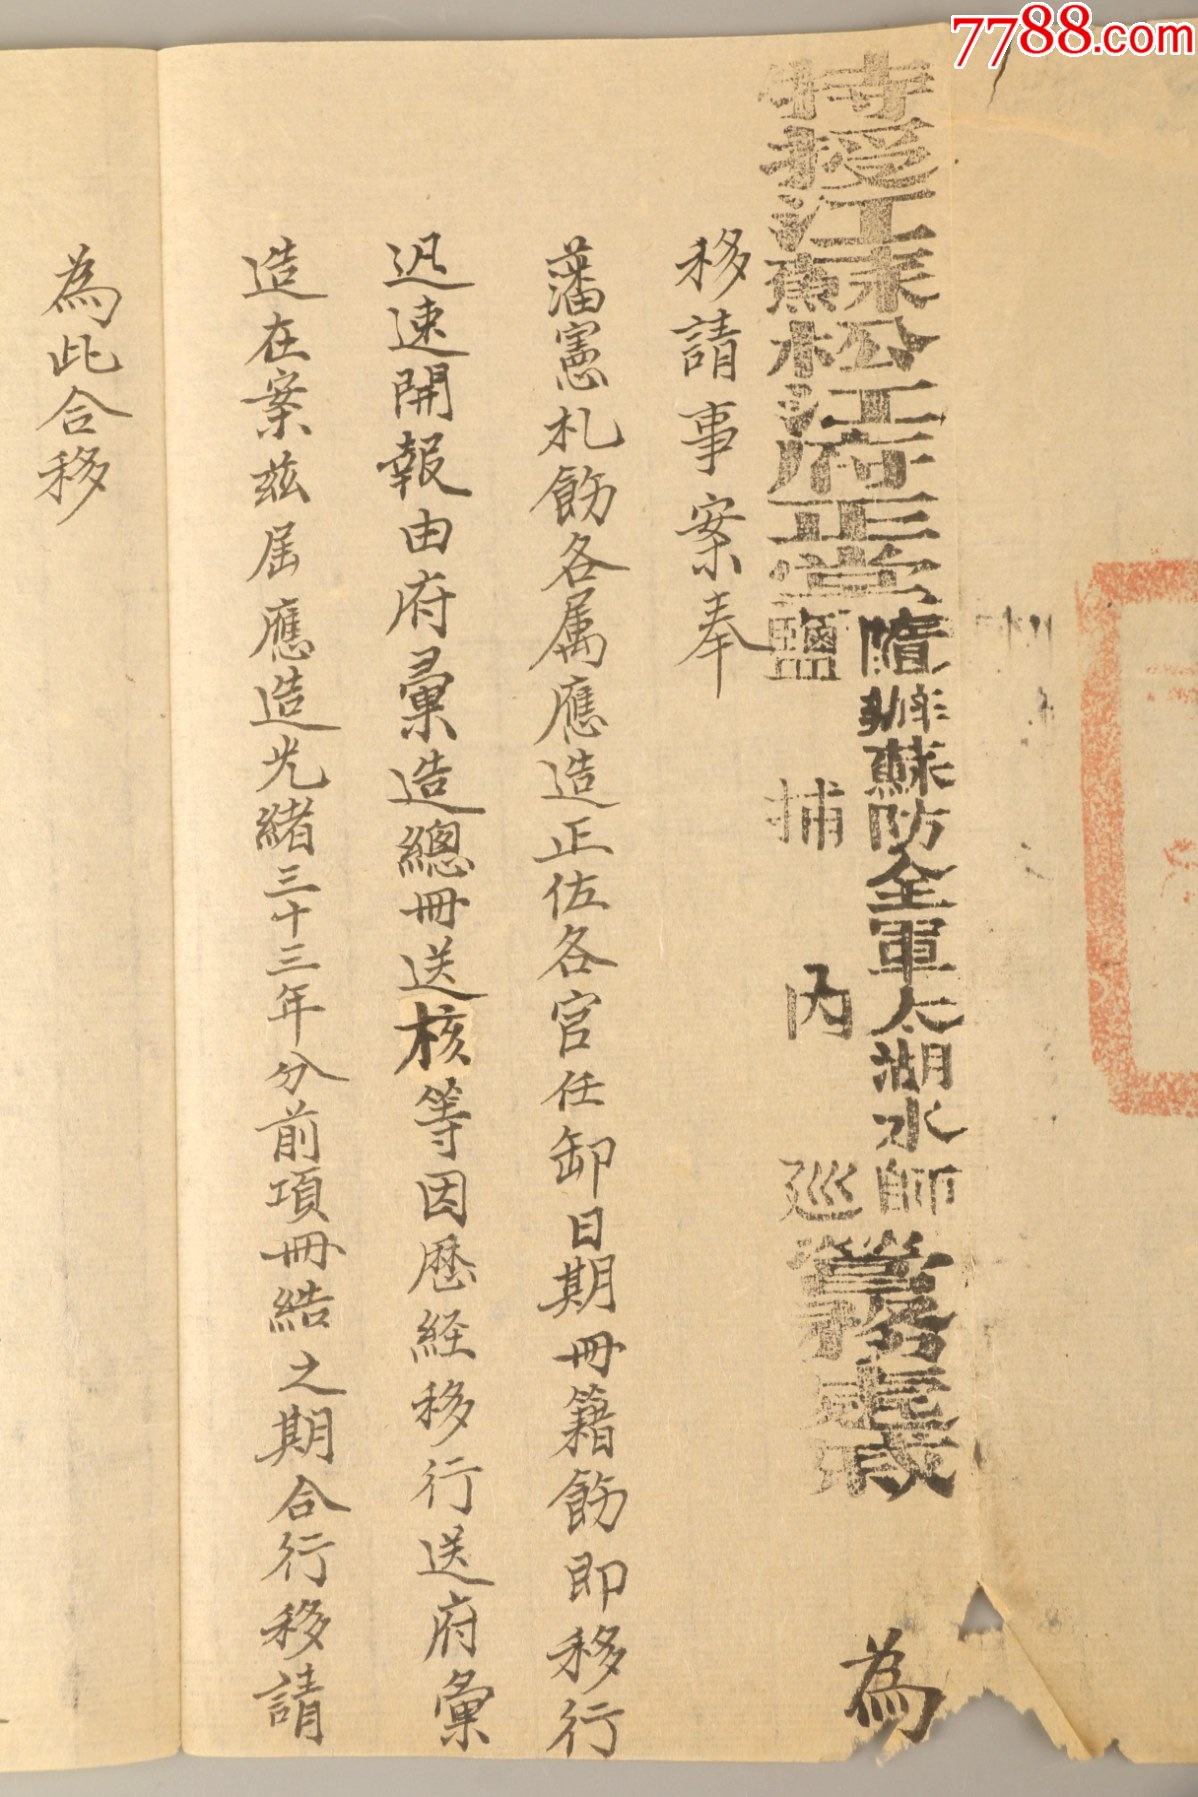 7788.com
特授江蘇松江府正堂
隨辦蘇防全軍太湖水師營務處
鹽捕內巡
戚
為
移請事案奉
藩憲札飭各属應造正佐各官任卸日期冊籍飭即移行
迅速開報由府彙造總冊送核等因歷経移行送府彙
造在案茲屆應造光緒三十三年分前項冊結之期合行移請
為此合移